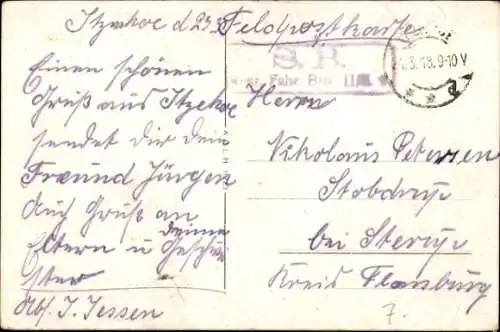 Itzehoe d 23.3. Feldpostkarte
S. B.
Fahr. Btr. II
3.18.9-10 V
Einen schönen
Gruß aus Itzehoe
sendet dir dein
Freund Jürgen
Auch Gruße an
deine
Eltern u Geschwi
ster
Abs. J. Jessen
Herrn
Nikolaus Petersen
bei Sterup
Kreis Flensburg
7.